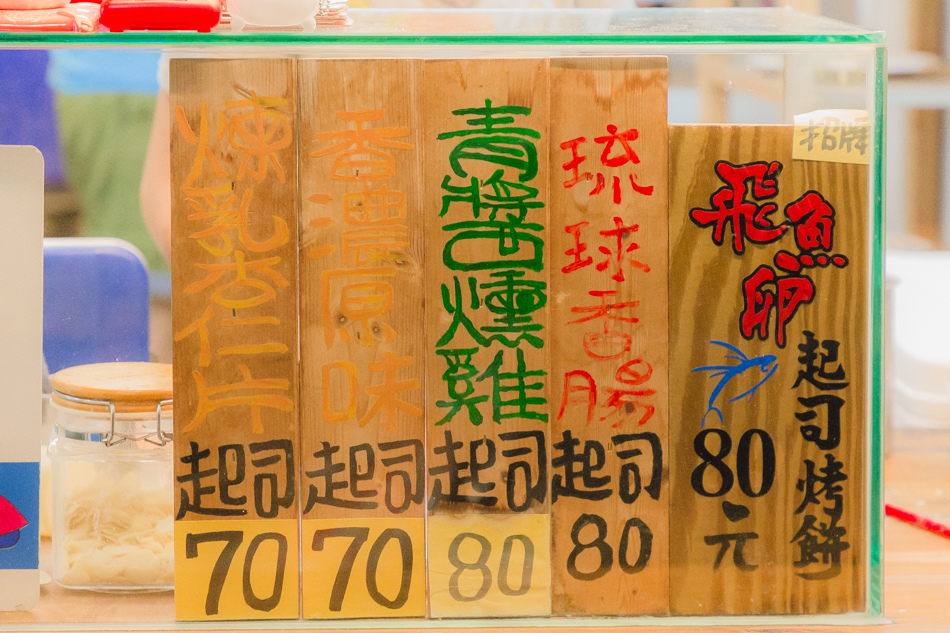 煉乳杏仁片
起司
70
香濃原味
起司
70
青醬燻雞
起司
80
琉球香腸
起司
80
招牌
飛魚卵
起司烤餅
80
元